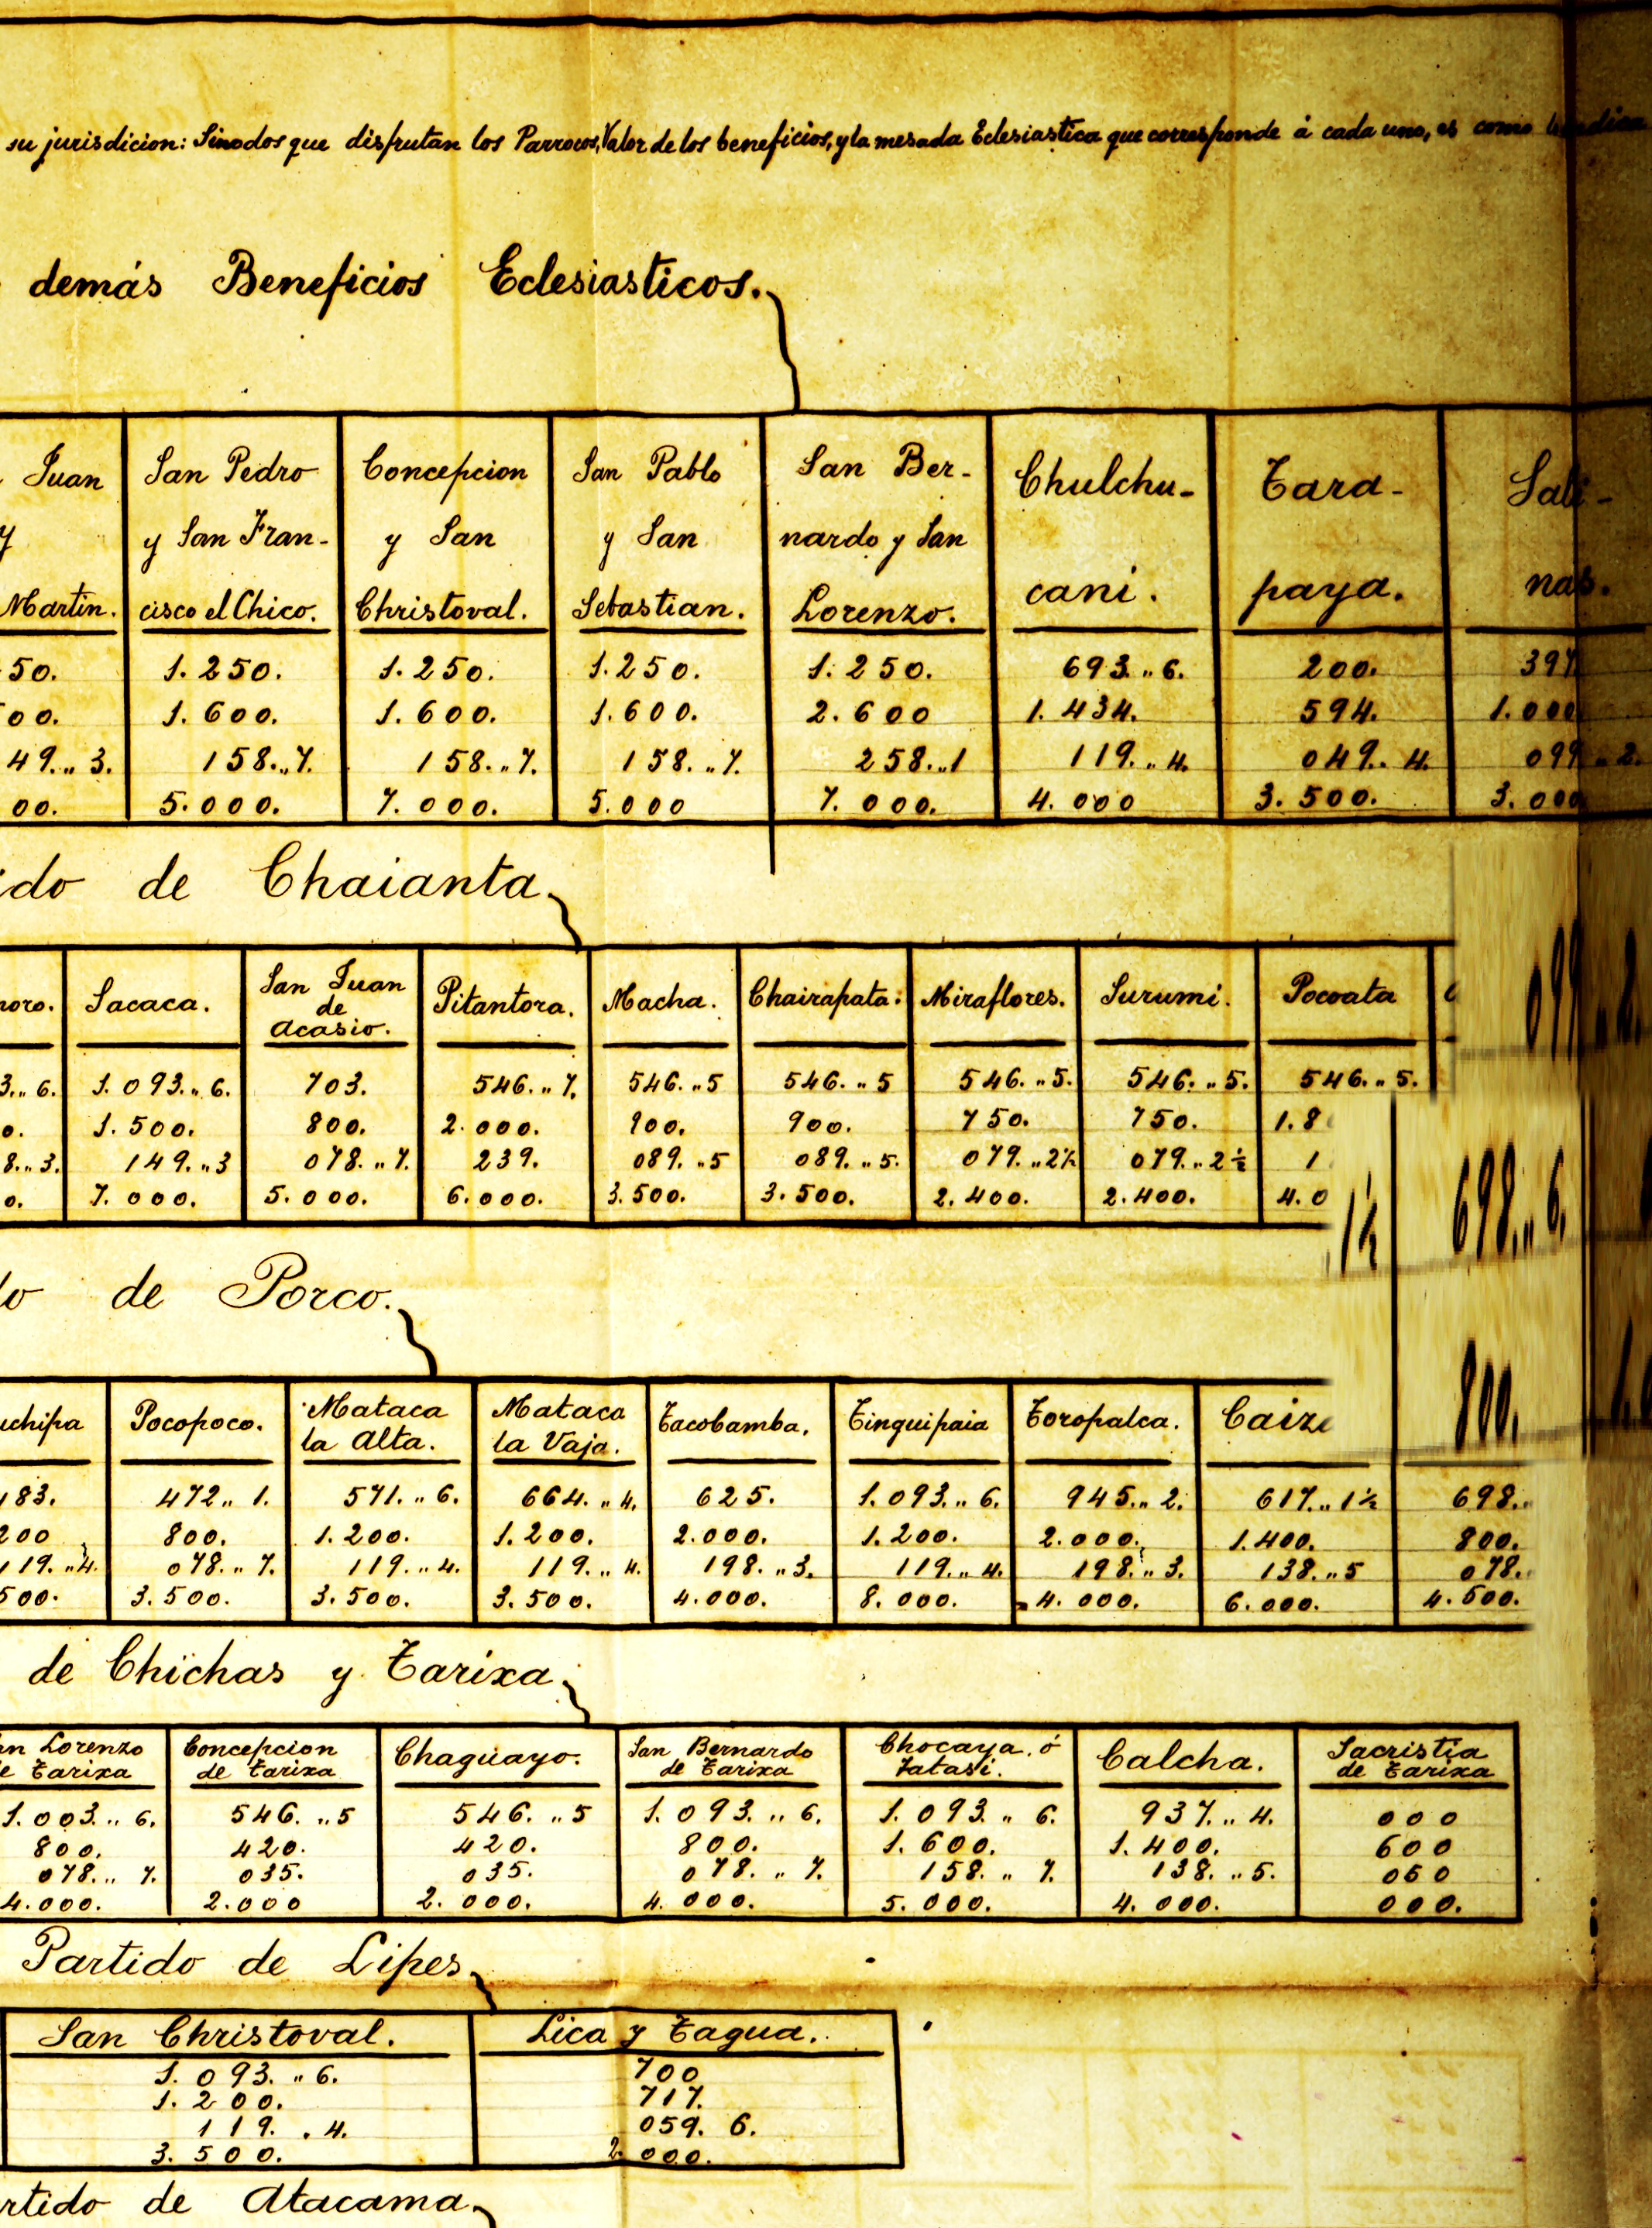 su jurisdicion: Sinodos que disfrutan los Parrocos, Valor de los beneficios, y la mesada Eclesiastica que corresponde á cada uno, es como
demás Beneficios Eclesiasticos.
Juan San Pedro Concepcion San Pablo San Ber- Chulchu- Tara- Sali-
y y San Fran- y San y San nardo y San
Martin. cisco el Chico. Christoval. Sebastian. Lorenzo. cani. paya. nas.
50. 1.250. 1.250. 1.250. 1.250. 693.,,6. 200. 397.
00. 1.600. 1.600. 1.600. 2.600 1.434. 594. 1.000
49.,,3. 158.,,7. 158.,,7. 158.,,7. 258.,,1 119.,,4. 049.. 4. 099.,,2.
00. 5.000. 7.000. 5.000 7.000. 4.000 3.500. 3.000
ido de Chaianta.
moro. Sacaca. San Juan de Acasio. Pitantora. Macha. Chairapata. Miraflores. Surumi. Pocoata
3.,,6. 1.093.,,6. 703. 546.,,7. 546.,,5 546.,,5 546.,,5. 546.,,5. 546.,,5.
0. 1.500. 800. 2.000. 900. 900. 750. 750. 1.8
8.,,3. 149.,,3 078.,,7. 239. 089.,,5 089.,,5. 079.,,2½ 079.,,2½ 1
0. 7.000. 5.000. 6.000. 3.500. 3.500. 2.400. 2.400. 4.0
099 ,,2.
1½ 698.,,6.
800.
do de Porco.
uchipa Pocopoco. Mataca la Alta. Mataca la Vaja. Tacobamba. Tinguipaia Toropalca. Caiz
183. 472,,1. 571.,,6. 664.,,4. 625. 1.093.,,6. 945.,,2. 617.,,1½ 698.
200 800. 1.200. 1.200. 2.000. 1.200. 2.000. 1.400. 800.
119.,,4. 078.,,7. 119.,,4. 119.,,4. 198.,,3. 119.,,4. 198.,,3. 138.,,5 078.
500. 3.500. 3.500. 3.500. 4.000. 8.000. 4.000. 6.000. 4.500.
de Chichas y Tarixa.
an Lorenzo de Tarixa Concepcion de Tarixa Chaguayo. San Bernardo de Tarixa Chocaya, ó Tatasi. Calcha. Sacristia de Tarixa
1.003.,,6. 546.,,5 546.,,5 1.093.,,6. 1.093.,,6. 937.,,4. 000
800. 420. 420. 800. 1.600. 1.400. 600
078.,,7. 035. 035. 078.,,7. 158.,,7. 138.,,5. 060
4.000. 2.000 2.000. 4.000. 5.000. 4.000. 000.
Partido de Lipes.
San Christoval. Lica y Tagua.
1.093.,,6. 700
1.200. 717.
119. . 4. 059. 6.
3.500. 2.000.
rtido de Atacama.